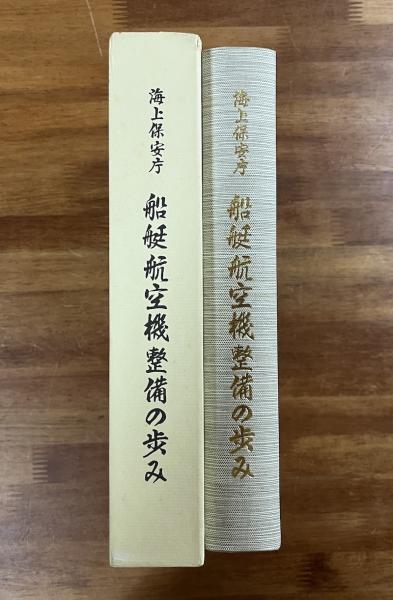 海上保安庁
船艇航空機整備の歩み
海上保安庁
船艇航空機整備の歩み